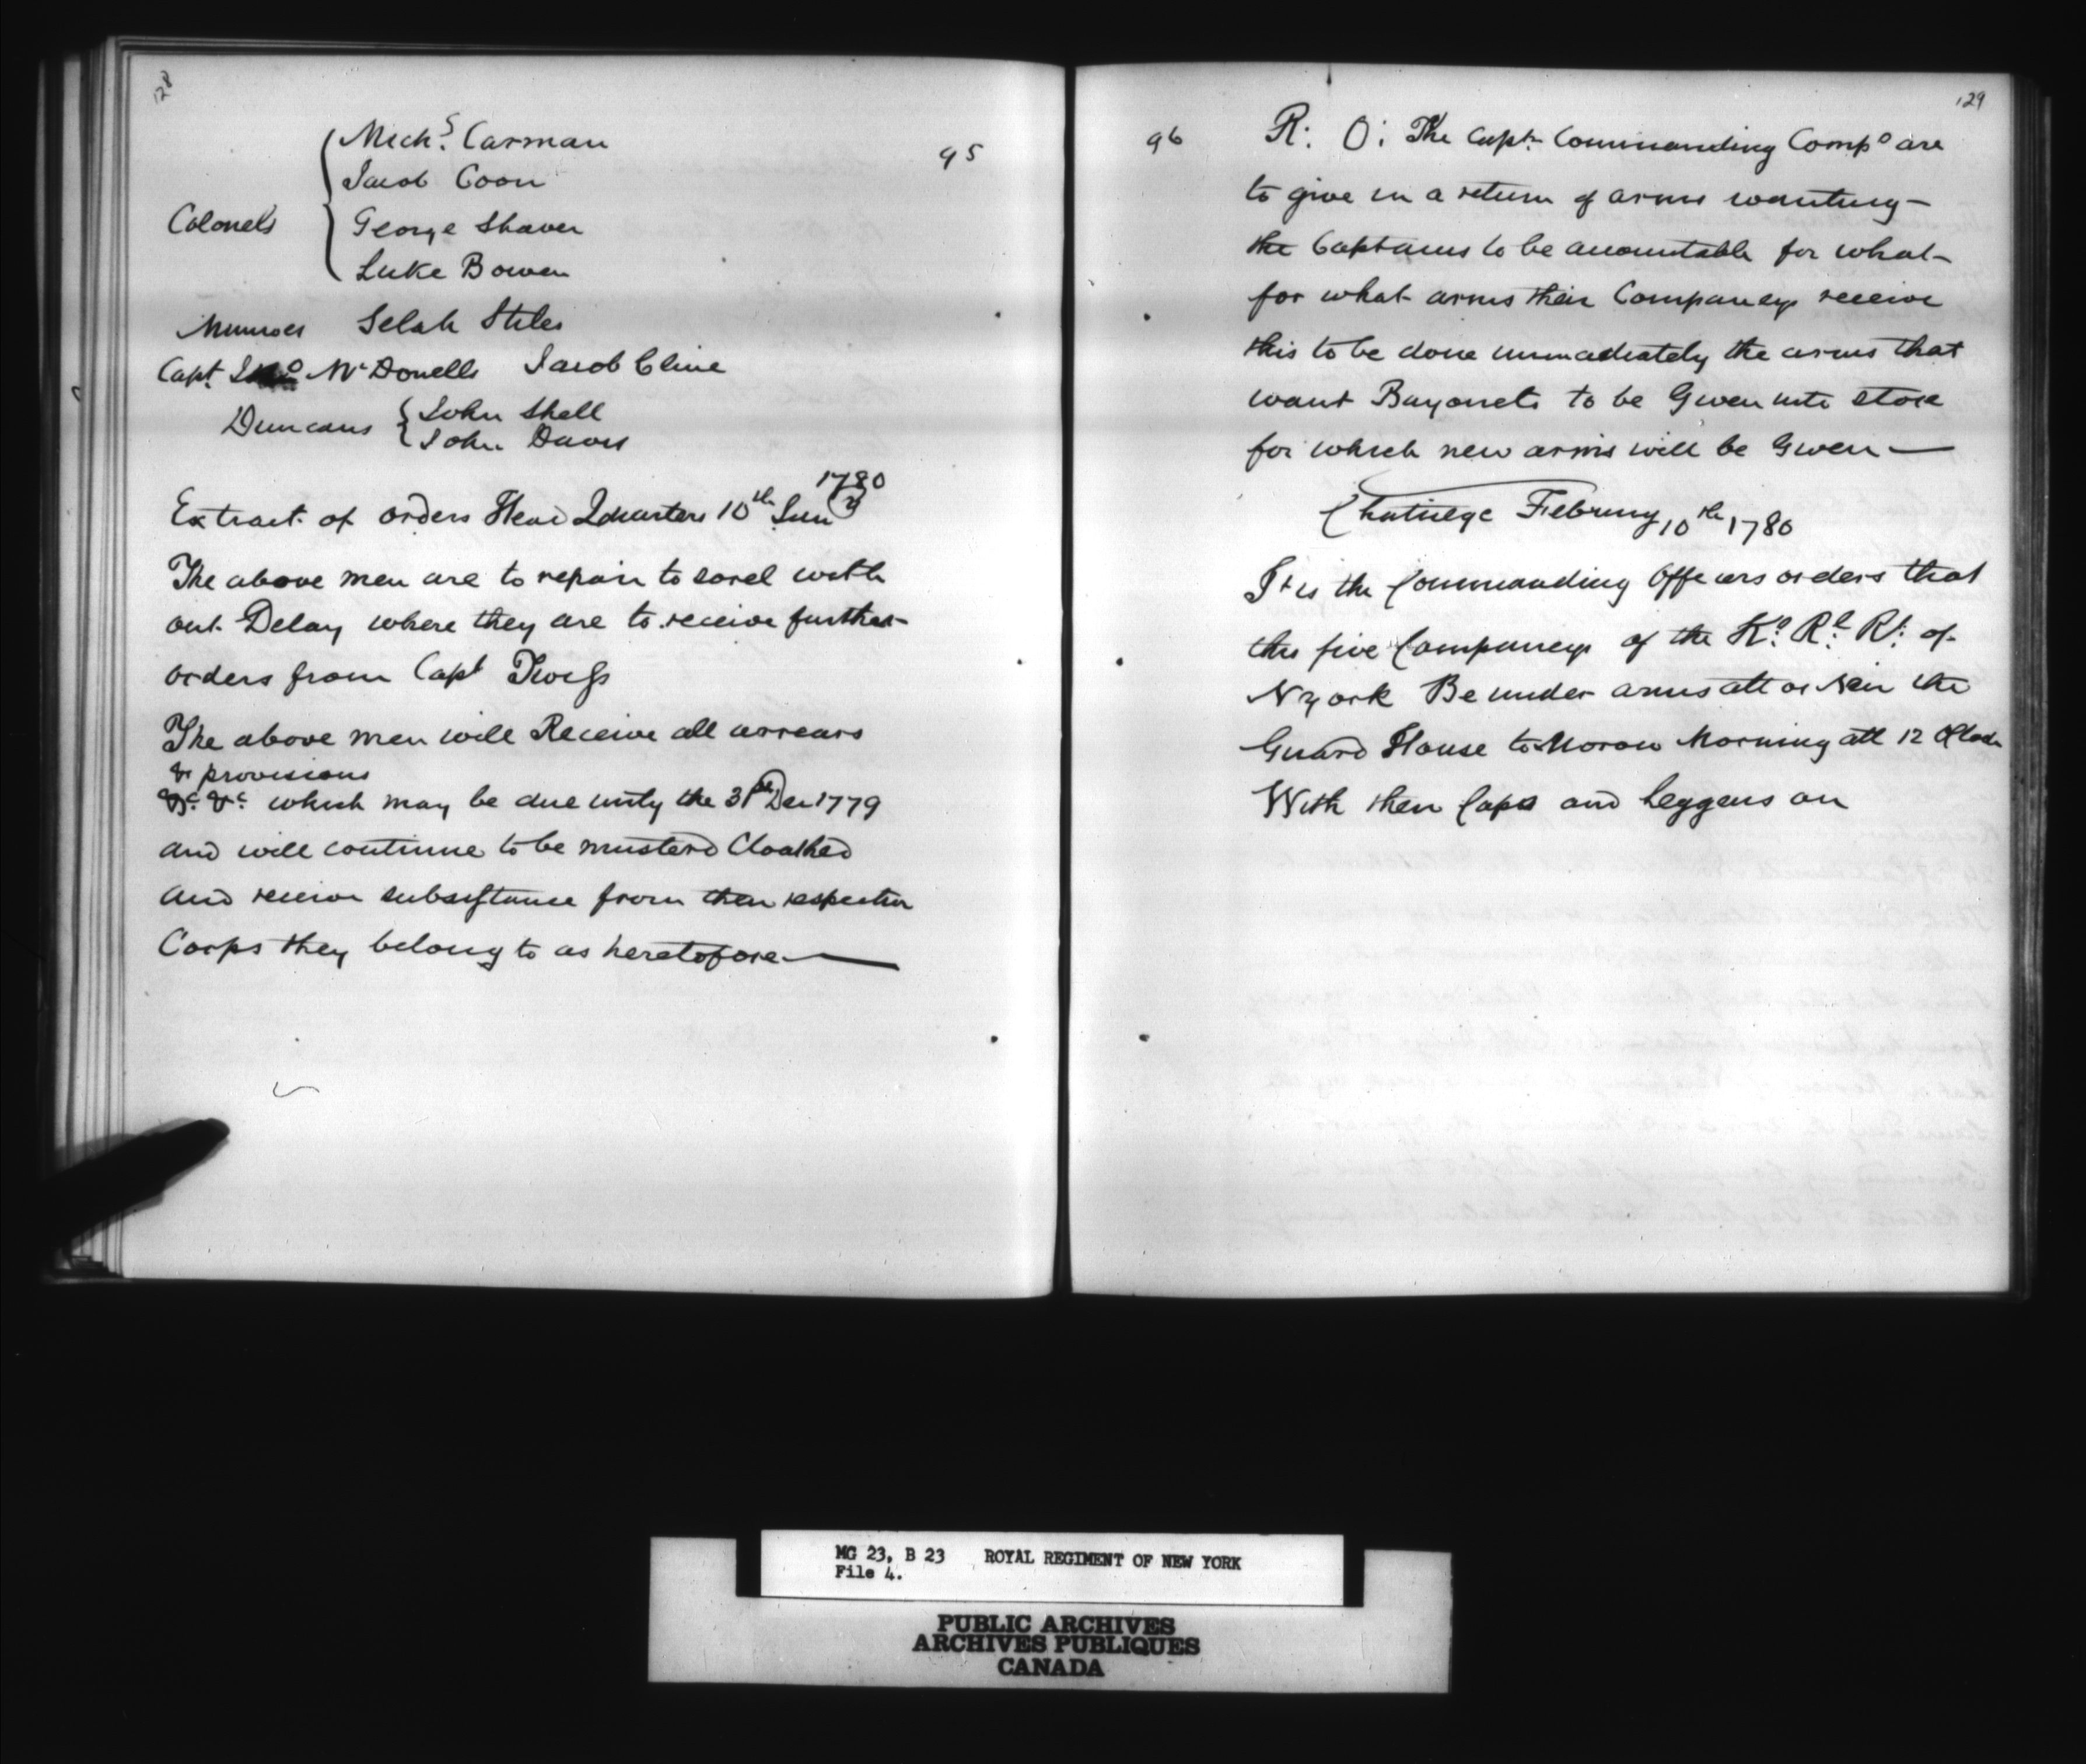 128
95
Mich.s Carman
Jacob Coon
Colonels
George Shaver
Luke Bowen
Munroes Selah Stiles
Capt. Jno McDonells Jacob Cline
Duncans
John Shell
John Davis
1780
Extract of orders Head Quarters 10th Jany
The above men are to repair to sorel with
out Delay where they are to receive further
orders from Capt Twiss
The above men will Receive all arrears
& provisions
&c. &c which may be due unty the 31st Dec 1779
and will continue to be musterd Cloathed
and receive subsistance from their respective
Corps they belong to as heretofore —
129
96
R: O: The Capt. Commanding Compo are
to give in a return of arms wanting —
the Captains to be accountable for what
for what arms their Companeys receive
this to be done immadiately the arms that
want Bayonets to be Given into store
for which new arms will be Given —
Februey 10th 1780
It is the Commanding Officers orders that
the five Companeys of the Ks. Rl. Rt. of
Nyork Be under arms att or Neir the
Guard House to Morow Morning att 12 OClock
With their Caps and Leggens on
MG 23, B 23 ROYAL REGIMENT OF NEW YORK
File 4.
PUBLIC ARCHIVES
ARCHIVES PUBLIQUES
CANADA